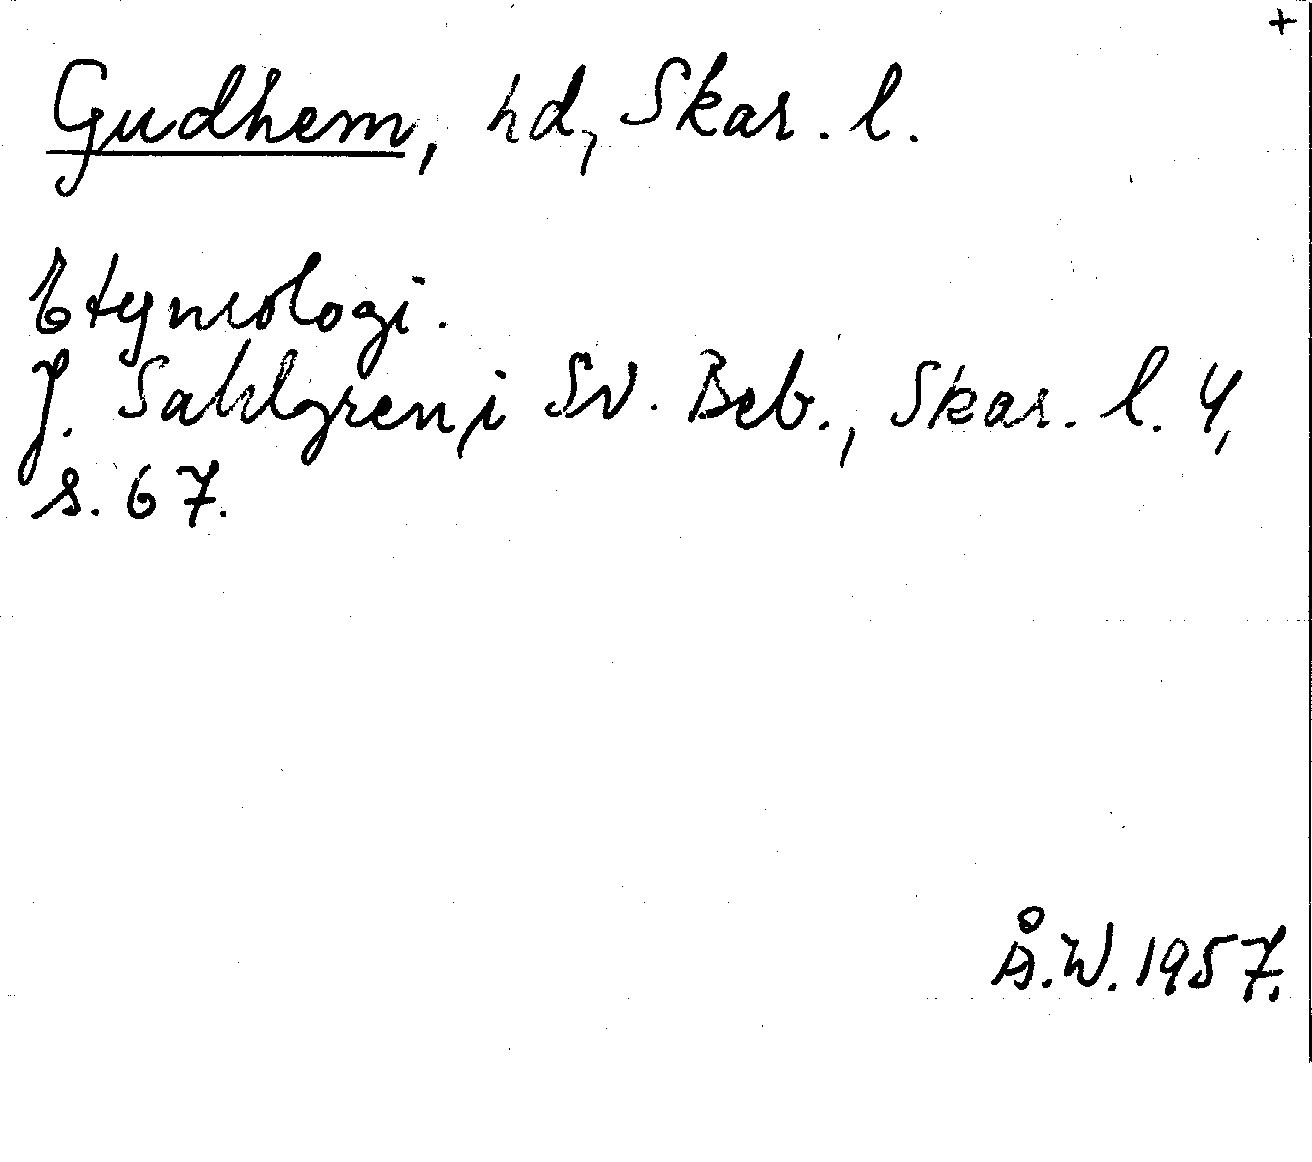 +
Gudhem, hd, Skar. l.
Etymologi.
J. Sahlgren, i Sv. Beb., Skar. l. 4,
s. 67.
Å.W. 1957.